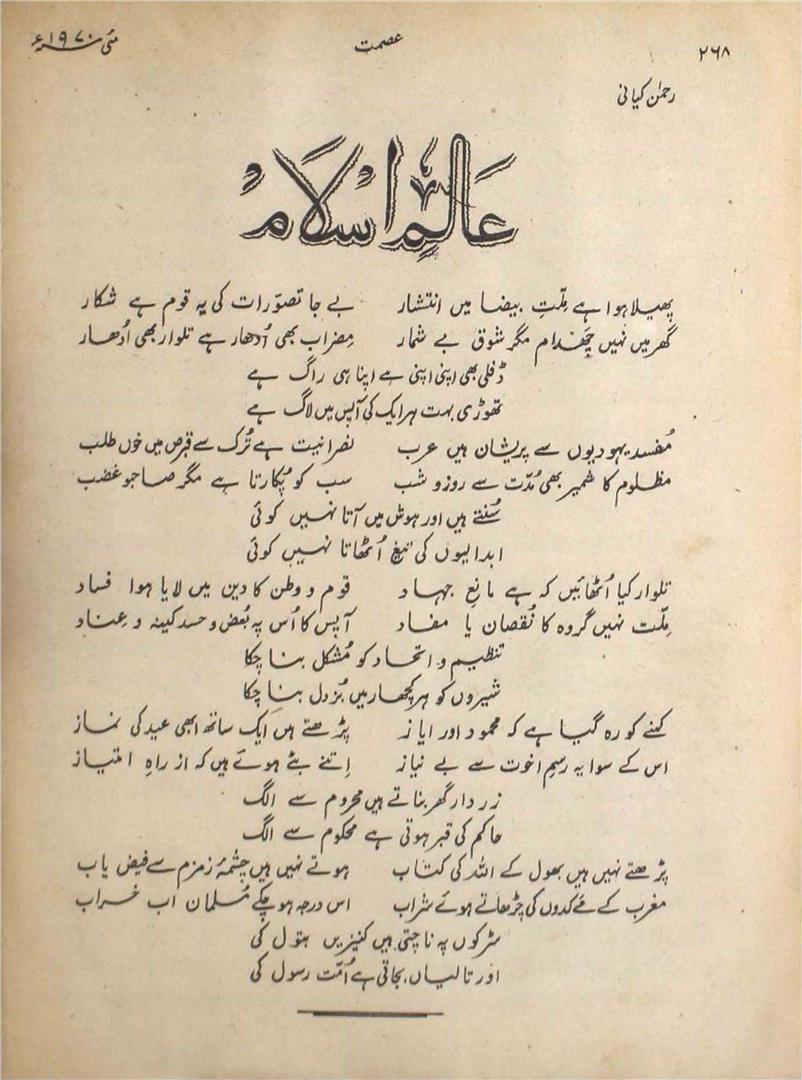 ۲۶۸ عصمت مئی ۱۹۷۰ء
رحمٰن کیانی
عالمِ اسلام
پھیلا ہوا ہے مِلّتِ بیضا میں انتشار بے جا تصوّرات کی یہ قوم ہے شکار
گھر میں نہیں چَھدام مگر شوق بے شمار مِضراب بھی اُدھار ہے تلوار بھی اُدھار
ڈفلی بھی اپنی اپنی ہے اپنا ہی راگ ہے
تھوڑی بہت ہر ایک کی آپس میں لاگ ہے
مُفسد یہودیوں سے پریشان ہیں عرب نصرانیت ہے تُرک سے قبرص میں خوں طلب
مظلوم کا ضمیر بھی مُدّت سے روز و شب سب کو پُکارتا ہے مگر صاحبو غضب
سُنتے ہیں اور ہوش میں آتا نہیں کوئی
ابدالیوں کی تیغ اُٹھاتا نہیں کوئی
تلوار کیا اُٹھائیں کہ ہے مانعِ جہاد قوم و وطن کا دین میں لایا ہوا فساد
مِلّت نہیں گروہ کا نُقصان یا مفاد آپس کا اُس پہ بُغض و حسد کینہ و عِناد
تنظیم و اتحاد کو مُشکل بنا چکا
شیروں کو ہر کچھار میں بُزدل بنا چکا
کہنے کو رہ گیا ہے کہ محمود اور ایاز پڑھتے ہیں ایک ساتھ ابھی عید کی نماز
اس کے سوا یہ رسمِ اخوت سے بے نیاز اِتنے بٹے ہوئے ہیں کہ از راہِ امتیاز
زردار گھر بناتے ہیں محروم سے الگ
حاکم کی قبر ہوتی ہے محکوم سے الگ
پڑھتے نہیں ہیں بھول کے اللہ کی کتاب ہوتے نہیں ہیں چشمۂ زمزم سے فیض یاب
مغرب کے مے کدوں کی چڑھاتے ہوئے شراب اس درجہ ہو چکے مُسلمان اب خراب
سڑکوں پہ ناچتی ہیں کنیزیں بتول کی
اور تالیاں بجاتی ہے اُمّت رسول کی